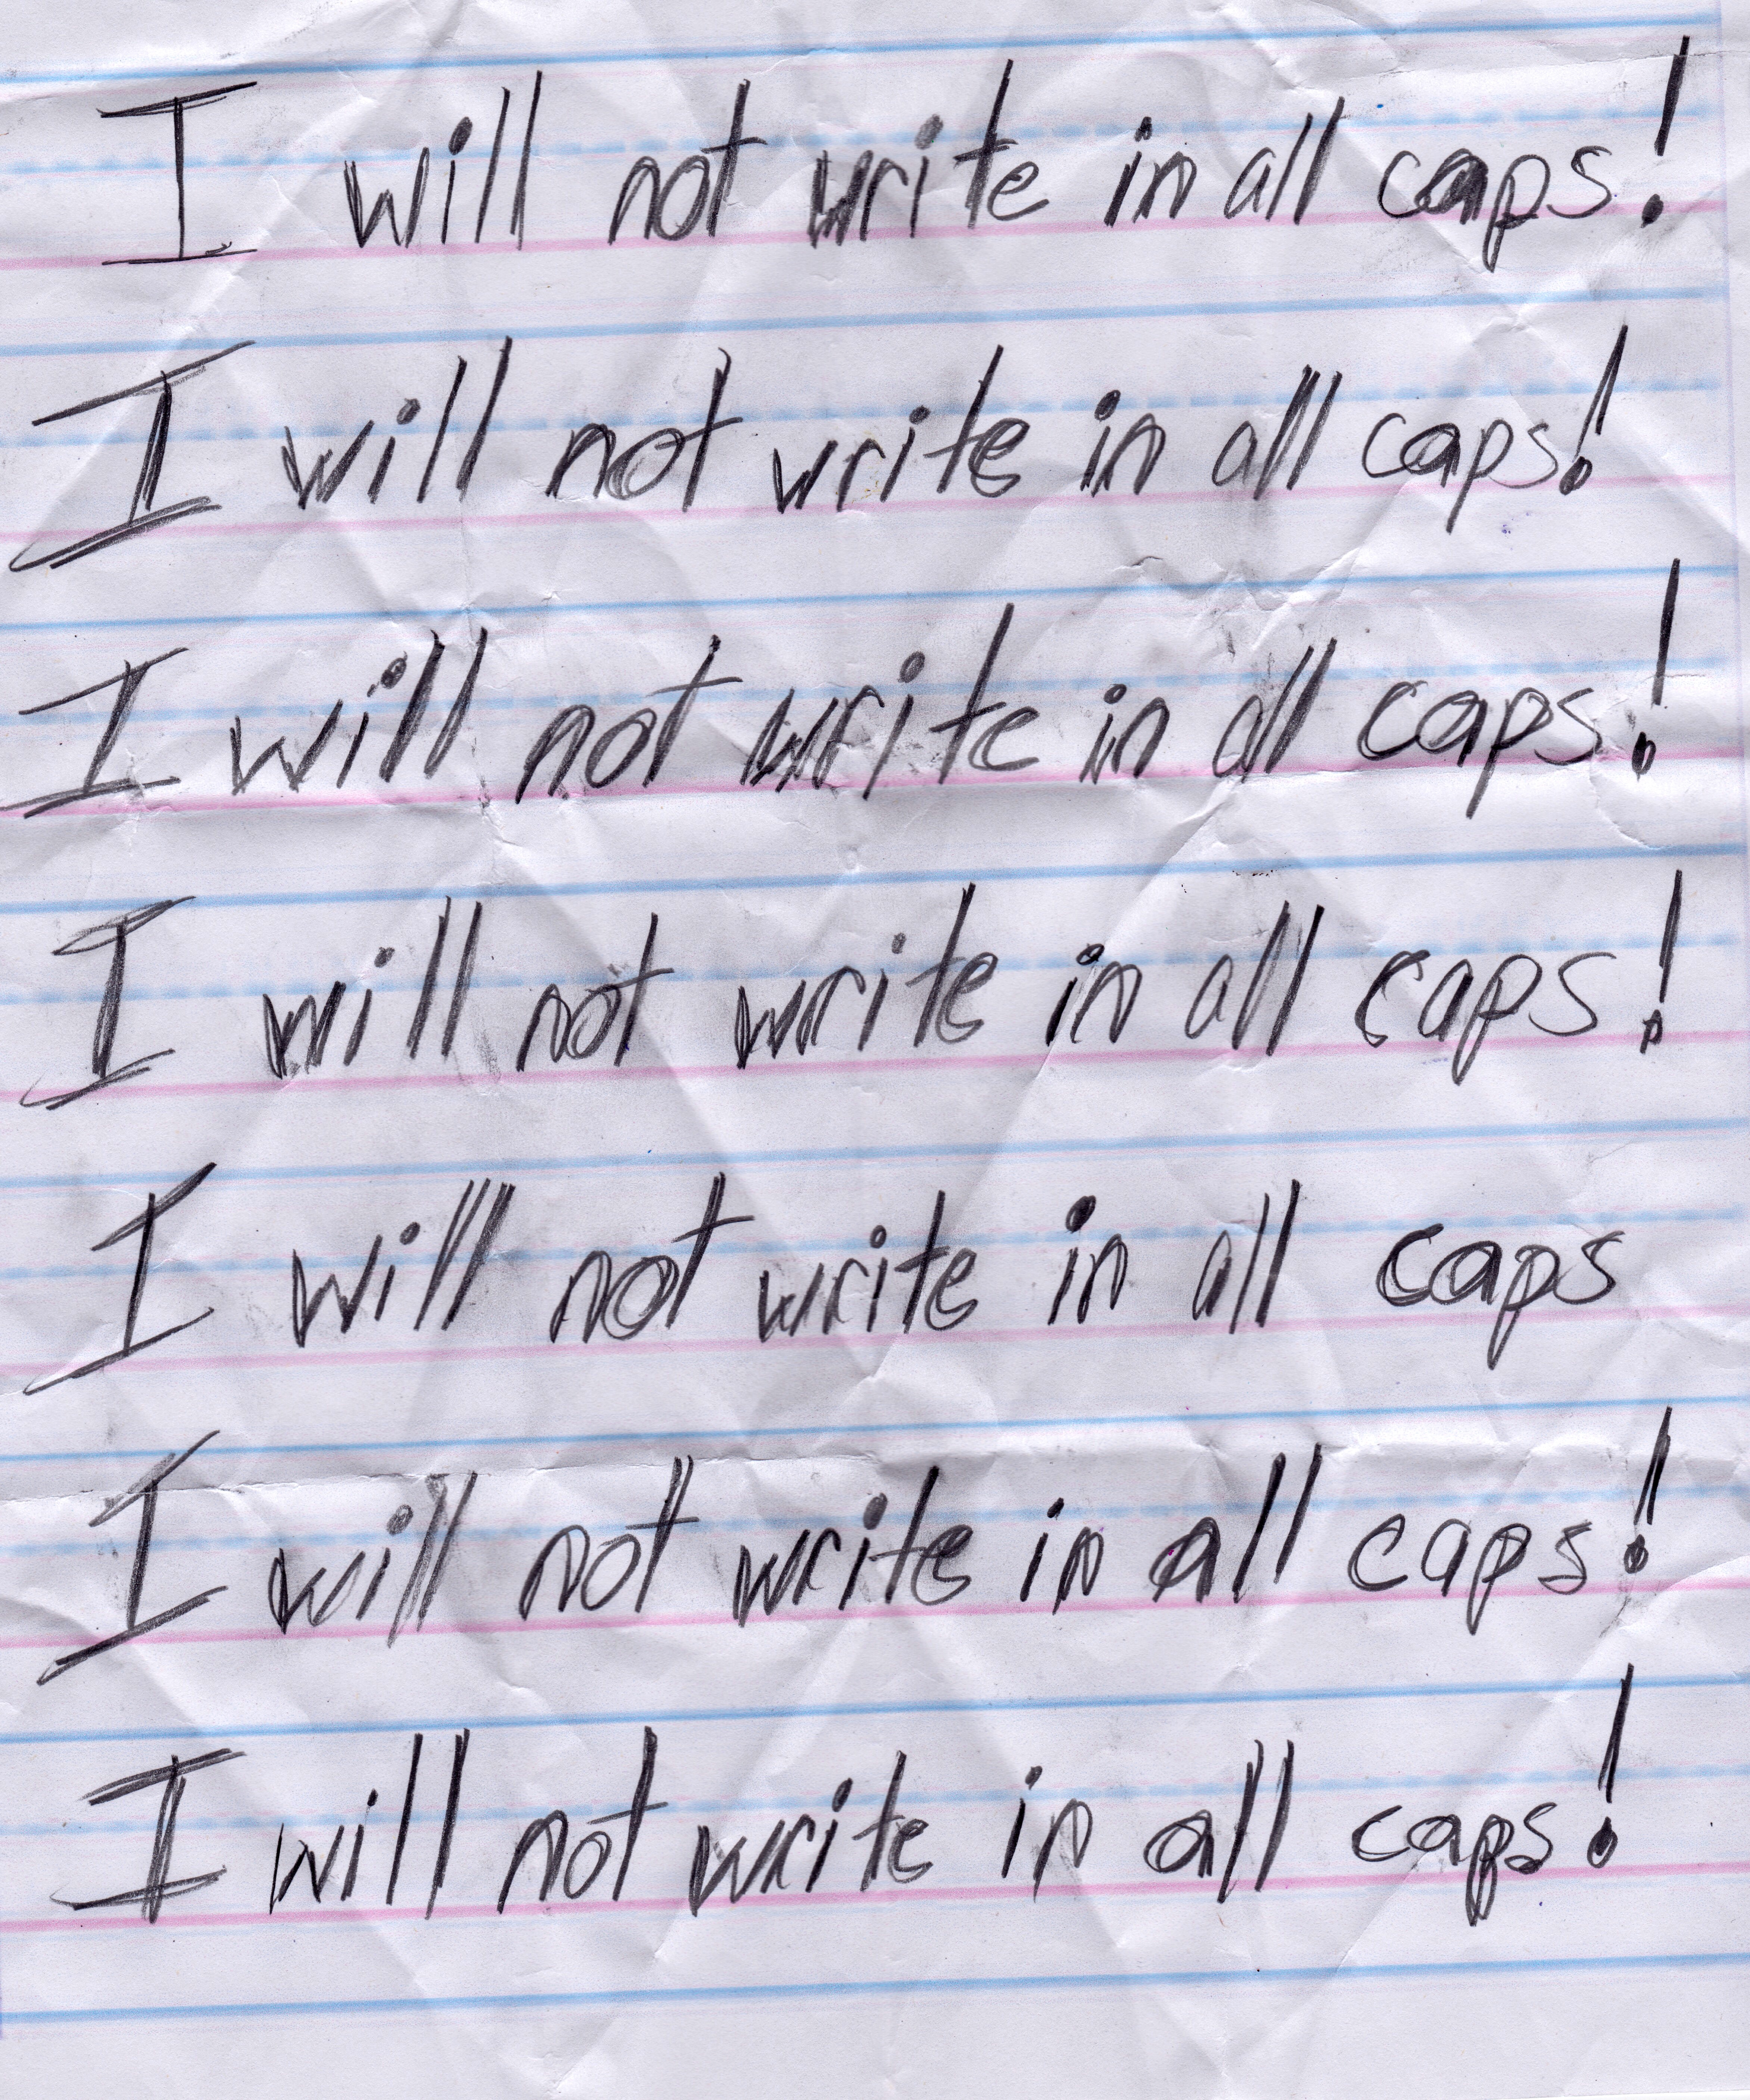 I will not write in all caps!
I will not write in all caps!
I will not write in all caps!
I will not write in all caps!
I will not write in all caps
I will not write in all caps!
I will not write in all caps!